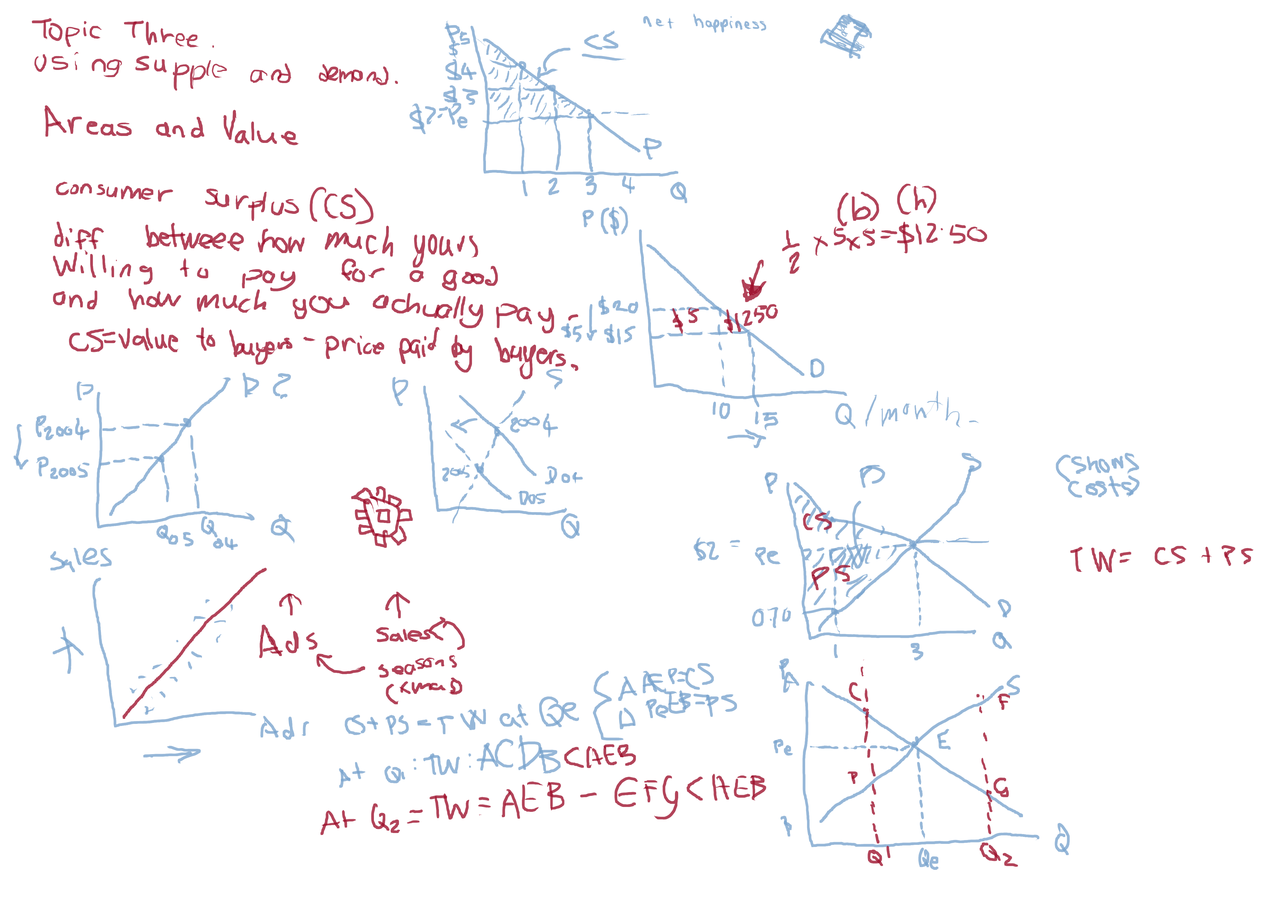 Topic Three.
using supple and demand.
Areas and Value
net happiness
CS
$4
$3
Pe
P
1 2 3 4 Q
consumer surplus (CS)
diff betweee how much yours
willing to pay for a good
and how much you actually pay -
CS = Value to buyers - price paid by buyers.
P ($)
(b) (h)
1/2 x 5x5 = $12.50
$20
$5 $15
$5 $1250
D
10 15 Q /month.
P
P2004
P2005
Q05 Q04 Q
P S
2004
2005
D04
D05
Q
Sales
Ads
Sales
seasons
(xmas)
Adr
P S
CS
$2 = Pe
PS
0.70
D
1 3 Q
(Shows
Costs)
TW = CS + PS
CS + PS = TW at Qe
AEP=CS
PeEB=PS
At Q1: TW: ACDB < AEB
At Q2 = TW = AEB - EFG < AEB
A
C S
F
Pe E
P G
Q1 Qe Q2 Q